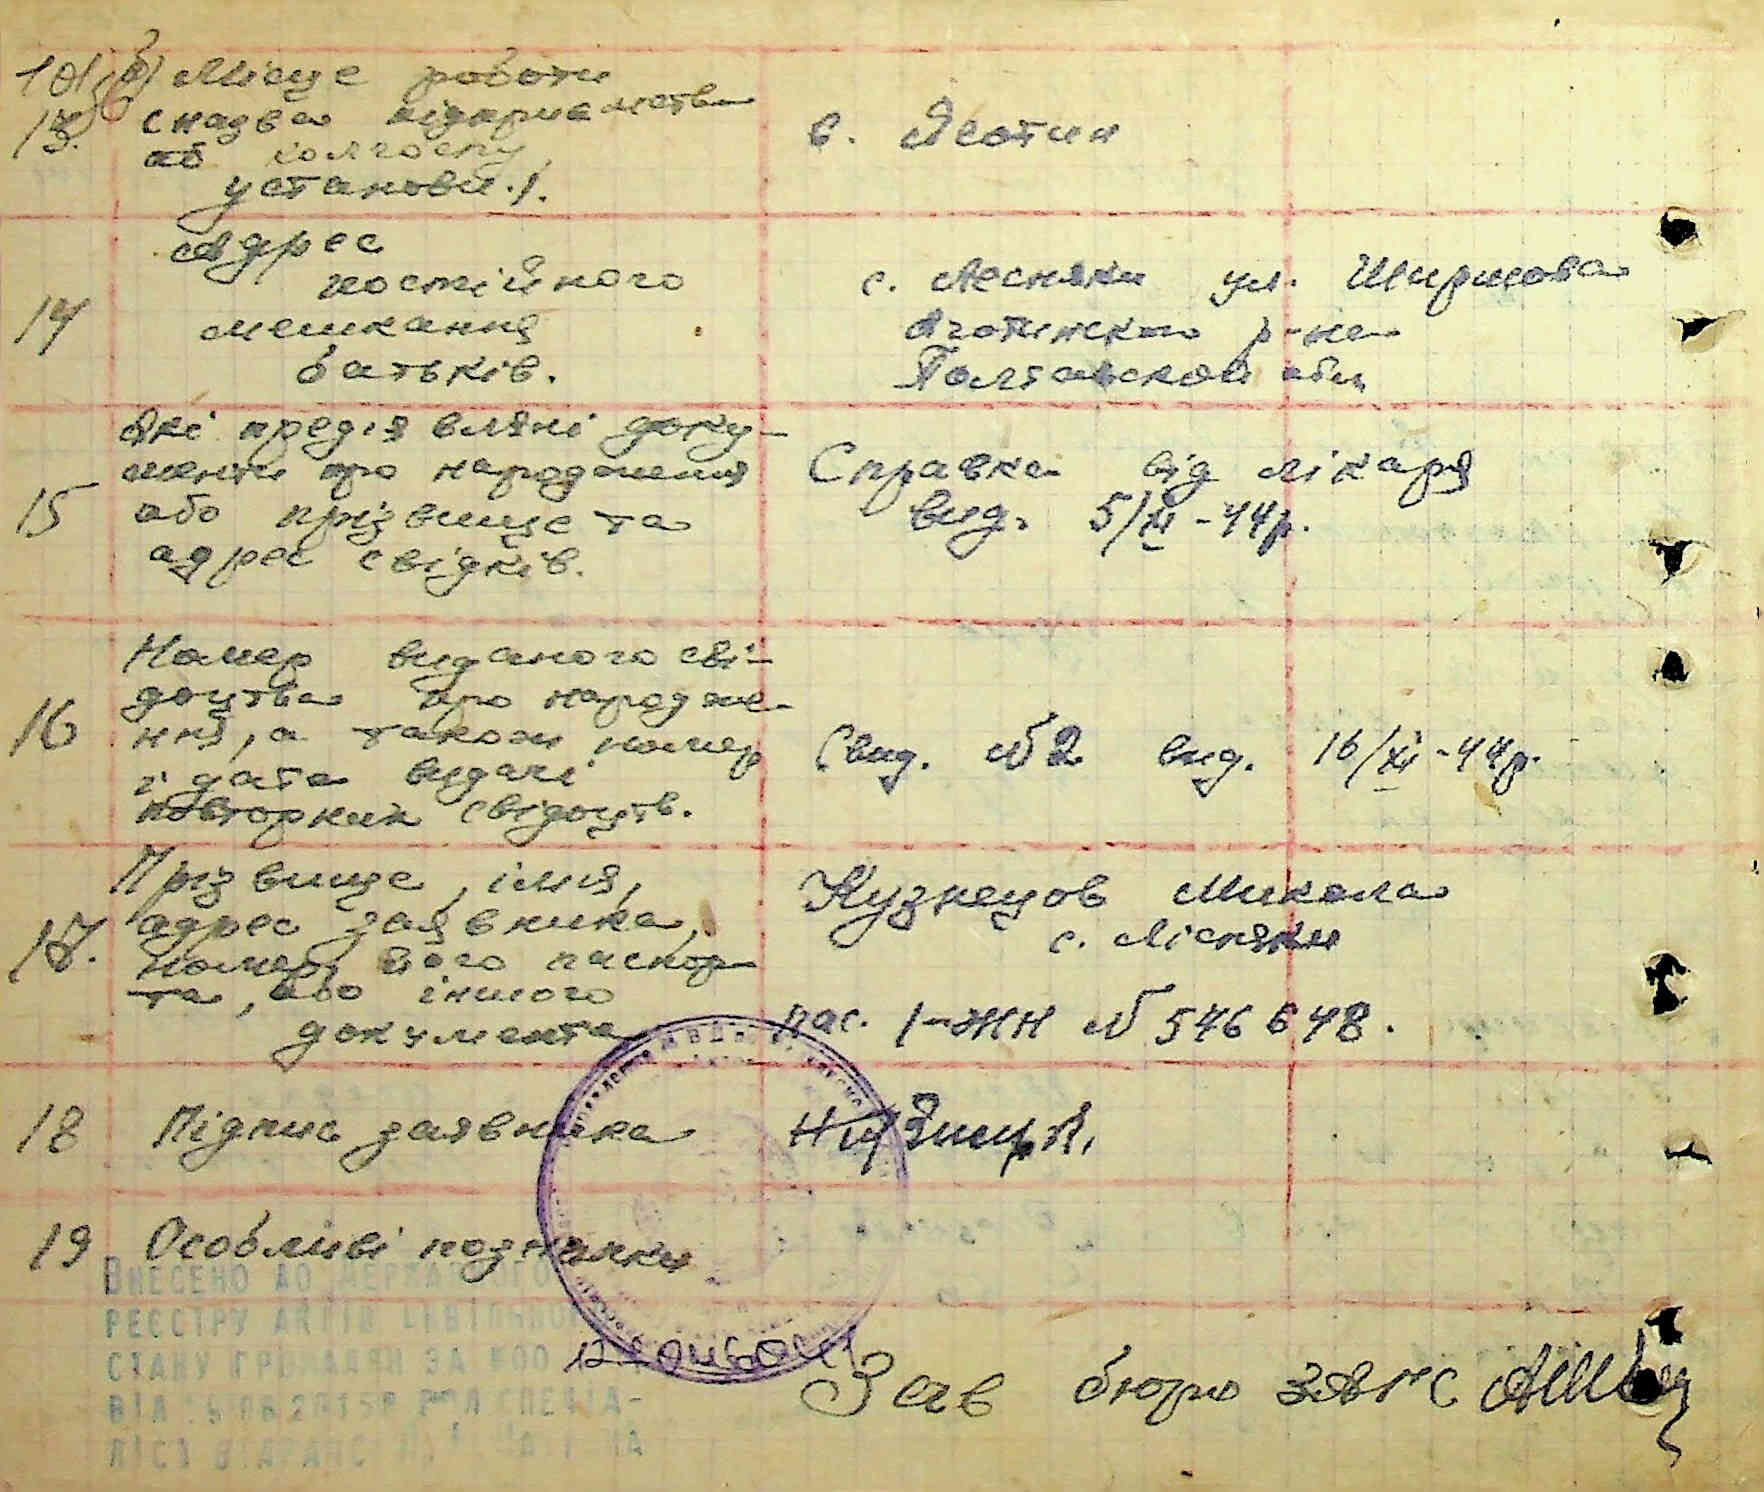 13. Місце роботи
/назва підприємства
або колгоспу,
установи./.
в. Яготин
14
Адрес
постійного
мешкання
батьків.
с. Лесняки ул. Ширшова
Яготинского р-на
Полтавской обл
15
Які предіявляні доку-
менти про народження
або прізвище та
адрес свідків.
Справка від лікаря
вид. 5/XI-44р.
16
Номер виданого сві-
доцтва про народже-
ння, а також номер
і дата видачі
повторних свідоцтв.
Свид. № 2 вид. 16/XI-44р.
17.
Прізвище, імія,
адрес заявника,
номер його паспор-
та, або іншого
документа
Кузнецов Микола
с. Лісняки
пас. 1-ЖН № 546648.
18 Підпис заявника
19 Особливі позначки
ВНЕСЕНО ДО ДЕРЖАВНОГО
РЕЄСТРУ АКТІВ ЦИВІЛЬНОГО
СТАНУ ГРОМАДЯН ЗА
ВІД СПЕЦІА-
ЛІСТ
Зав бюро ЗАГС